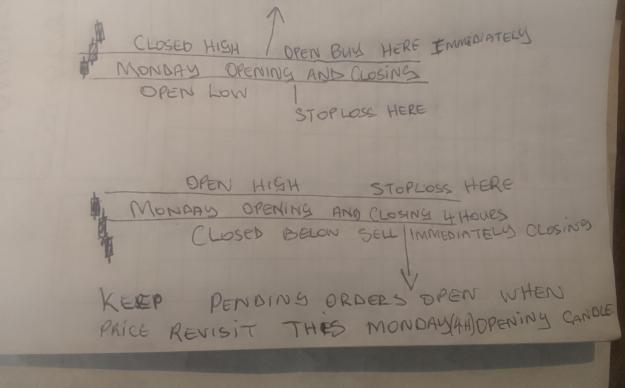 CLOSED HIGH OPEN BUY HERE IMMEDIATELY
MONDAY OPENING AND CLOSING
OPEN LOW
STOPLOSS HERE
OPEN HIGH STOPLOSS HERE
MONDAY OPENING AND CLOSING 4 HOURS
CLOSED BELOW SELL IMMEDIATELY CLOSING
KEEP PENDING ORDERS OPEN WHEN
PRICE REVISIT THIS MONDAY(4H)OPENING CANDLE